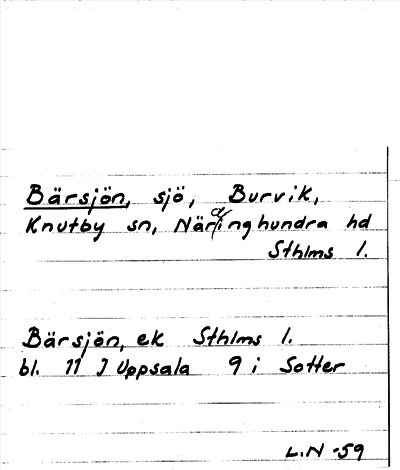 Bärsjön, sjö, Burvik,
Knutby sn, Närdinghundra hd
Sthlms l.
Bärsjön, ek Sthlms l.
bl. 11 J Uppsala 9 i Sotter
L.N -59